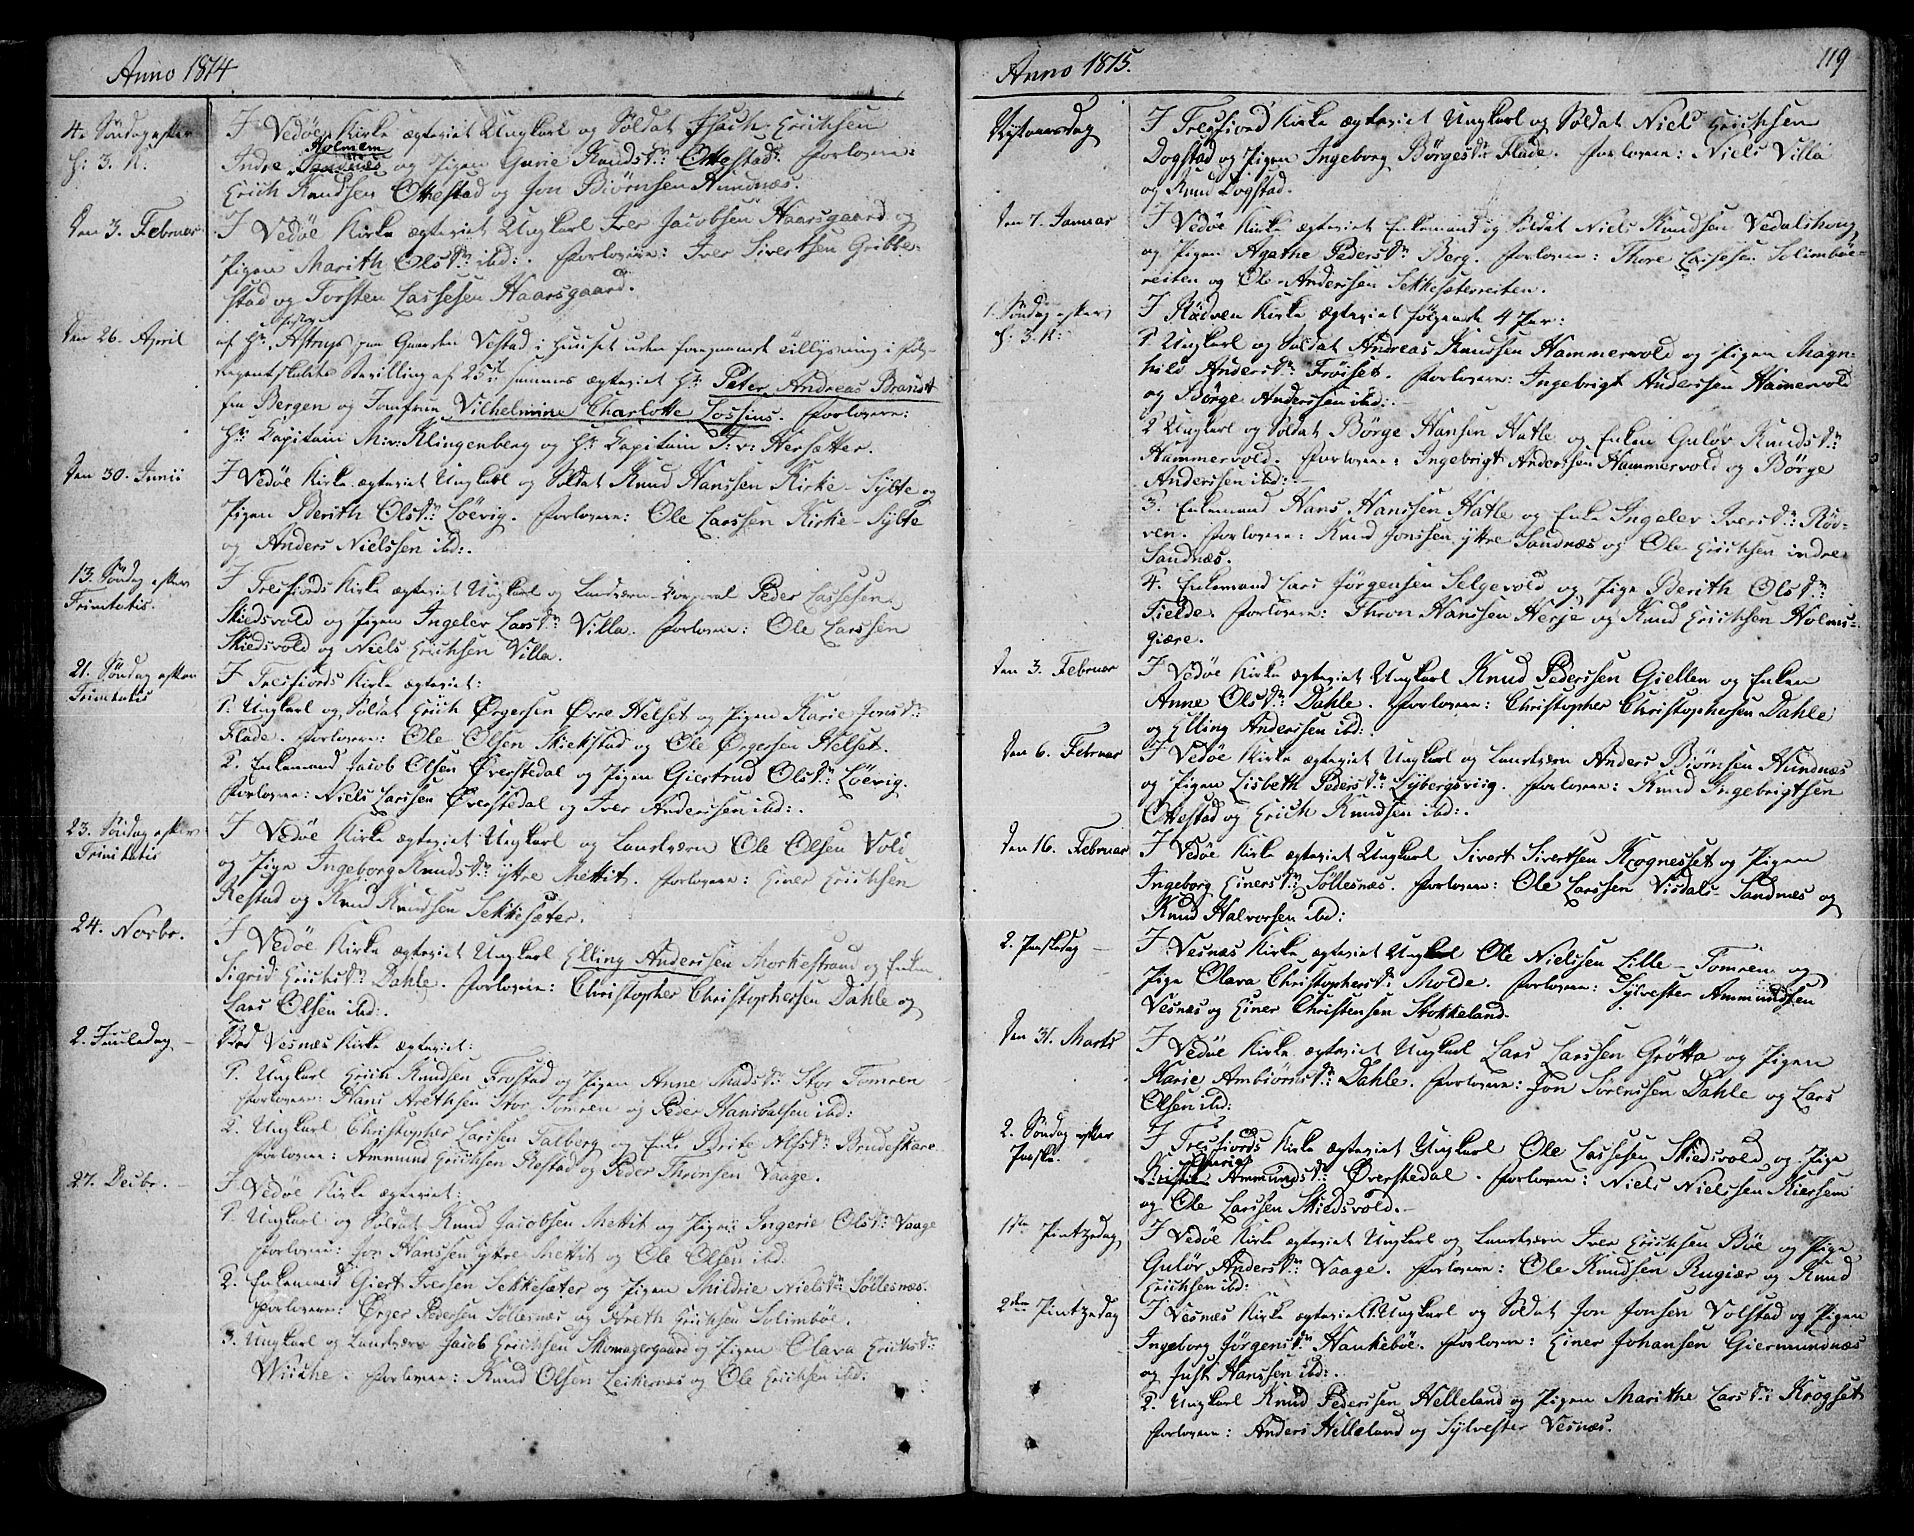 Anno 1814
4de Søndag efter
H: 3. K:
I Vedøe Kirke ægteviet Ungkarl og Soldat Isach Erichsen
Holmem
Indre Sandnæs og Pigen Gurie Knudsdr: Ottestad. Forlovere:
Erich Knudsen Ottestad og Jon Biørnsen Hundnæs.
Den 3. Februar
I Vedøe Kirke ægteviet Ungkarl Iver Jacobsen Haarsgaard og
Pigen Marith Olsdr: ibd:. Forlovere: Iver Sivertsen Gribbe-
stad og Torsten Lassesen Haarsgaard.
Den 26. April
af Hr. Astrup paa Gaarden Vestad i Huuset uden foregaaende Tillysning
Regentskabets Bevilling af 25de ægteviet Hr: Peter Andreas Brandt
fra Bergen og Jomfrue Vilhelmine Charlotte Lossius. Forlovere:
Hr: Capitain M: v: Klingenberg og Hr: Capitain F: v: Hersætter.
Den 30. Junii
I Vedøe Kirke ægteviet Ungkarl og Soldat Knud Hanssen Kirke-Sylte og
Pigen Berith Olsdr: Løevig. Forlovere: Ole Larssen Kirke-Sylte
og Anders Nielssen ibd:.
13. Søndag efter
Trinitatis.
I Tresfiords Kirke ægteviet Ungkarl og Landværn-Corporal Peder Lassesen
Skiedsvold og Pigen Ingeler Larsdr: Villa. Forlovere: Ole Larssen
Skiedsvold og Niels Erichsen Villa.
21. Søndag efter
Trinitatis
I Tresfiords Kirke ægteviet:
1. Ungkarl og Soldat Erich Ørgersen Øvre Helset og Pigen Karie Jonsdr:
Flade. Forlovere: Ole Olsen Kiekstad og Ole Ørgersen Helset.
2. Enkemand Jacob Olsen Øverstedal og Pigen Giertrud Olsdr: Løevig.
Forlovere: Niels Larssen Øverstedal og Iver Anderssen ibd:.
23. Søndag efter
Trinitatis
I Vedøe Kirke ægteviet Ungkarl og Landværn Ole Olsen Vold
og Pige Ingeborg Knudsdr: ytre Mettit. Forlovere: Einer Erichsen
Restad og Knud Knudsen Sekkesæter.
24. Novbr.
I Vedøe Kirke ægteviet Ungkarl Elling Anderssen Morkestrand og Enken
Sigrid Erichsdr: Dahle. Forlovere: Christopher Christophersen Dahle og
Lars Olsen ibd:.
2. Juuledag
Ved Vesnæs Kirke ægteviet:
1. Ungkarl Erich Knudsen Frostad og Pigen Anne Madsdr: Stor Tomren
Forlovere: Hans Arethsen Stor Tomren og Peder Hanibalsen ibd:
2. Ungkarl Christopher Larssen Talberg og Enke Brite Alfsdr: Brudeskare
Forlovere: Ammund Erichsen Restad og Peder Thronsen Vaage.
27. Decbr.
I Vedøe Kirke ægteviet:
1. Ungkarl og Soldat Knud Jacobsen Mettit og Pigen Ingerie Olsdr: Vaage
Forlovere: Jon Hanssen ytre Mettit og Ole Olsen ibd.
2. Enkemand Giert Iversen Sekkesæter og Pigen Mildrie Nielsdr: Søllesnæs.
Forlovere: Ørger Pedersen Sølesnæs og Areth Erichsen Solimbøe.
3. Ungkarl og Landværn Jacob Erichsen Skomagergaard og Pigen Olava Erichsdr:
Wiische. Forlovere: Knud Olsen Leikernæs og Ole Erichsen ibd.
Anno 1815.
119
Nytaarsdag
I Tresfiord Kirke ægteviet Ungkarl og Soldat Niels Erichsen
Dogstad og Pigen Ingeborg Børgesdr: Flade. Forlovere: Niels Villa
og Knud Dogstad.
Den 7. Januar
I Vedøe Kirke ægteviet Enkemand og Soldat Niels Knudsen Vedalshoug
og Pigen Agathe Pedersdr: Berg. Forlovere: Thore Lassesen Solimbøe-
reiten og Ole Anderssen Sekkesæterreiten.
1. Søndag efter
H. 3. K:
I Rødven Kirke ægteviet følgende 4 Par:
1. Ungkarl og Soldat Andreas Knudsen Hammervold og Pigen Magn-
hild Andersdr: Frøiset. Forlovere: Ingebrigt Anderssen Hamervold
og Børge Anderssen ibd:.
2 Ungkarl og Soldat Børge Hansen Hatle og Enken Guløv Knudsdr:
Hammervold. Forlovere: Ingebrigt Anderssen Hammervold og Børge
Anderssen ibd:.
3. Enkemand Hans Hanssen Hatle og Enke Ingelev Iversdr: Rød-
ven. Forlovere: Knud Jonssen ytre Sandnæs og Ole Erichsen indre
Sandnæs.
4. Enkemand Lars Jørgensen Selgevold og Pige Berith Olsdr:
Fielde. Forlovere: Thron Hanssen Herje og Knud Erichsen Holms-
giære.
Den 3. Februar
I Vedøe Kirke ægteviet Ungkarl Knud Pederssen Giellen og Enken
Anne Olsdr: Dahle. Forlovere: Christopher Christophersen Dahle
og Elling Anderssen ibd:.
Den 6. Februar
I Vedøe Kirke ægteviet Ungkarl og Landværn Anders Biørnsen Hundnæs
og Pigen Lisbeth Pedersdr: Lybergsviig. Forlovere: Knud Ingebrigtsen
Ottestad og Erich Knudsen ibd:.
Den 16. Februar
I Vedøe Kirke ægteviet Ungkarl Sivert Sivertsen Krognesset og Pigen
Ingeborg Einersdr: Søllesnæs. Forlovere: Ole Larssen Visdals-Sandnæs og
Knud Halvorsen ibd:
2. Paaskedag
I Vesnæs Kirke ægteviet Ungkarl Ole Nielssen Lille-Tomren og
Pige Olava Christophersdr: Molde. Forlovere: Sylvester Ammundsen
Vesnæs og Einer Christensen Stokkeland.
Den 31. Marts
I Vedøe Kirke ægteviet Ungkarl Lars Larssen Grøtta og Pigen
Karie Ambiørnsdr: Dahle. Forlovere: Jon Sørenssen Dahle og Lars
Olsen ibd:
2. Søndag efter
Paaske.
I Tresfiords Kirke ægteviet Ungkarl Ole Lassesen Skiedsvold og Pige
Ammundsdr: Øverstedal. Forlovere: Niels Nielssen Kiersem
og Ole Larssen Skiedsvold.
1ste Pintzedag
I Vedøe Kirke ægteviet Ungkarl og Landværn Iver Erichsen Bøe og Pige
Guløv Andersdr: Vaage. Forlovere: Ole Knudsen Rugiær og Knud
Erichsen ibd:
2den Pintzedag
I Vesnæs Kirke ægteviet 1. Ungkarl og Soldat Jon Jonsen Volstad og Pigen
Ingeborg Jørgensdr: Haukebøe. Forlovere: Einer Johansen Giermundnæs
og Just Hanssen ibd:.
2. Ungkarl Knud Pederssen Helleland og Pigen Marithe Larsdr: Krogset
Forlovere: Anders Helleland og Sylvester Vesnæs.